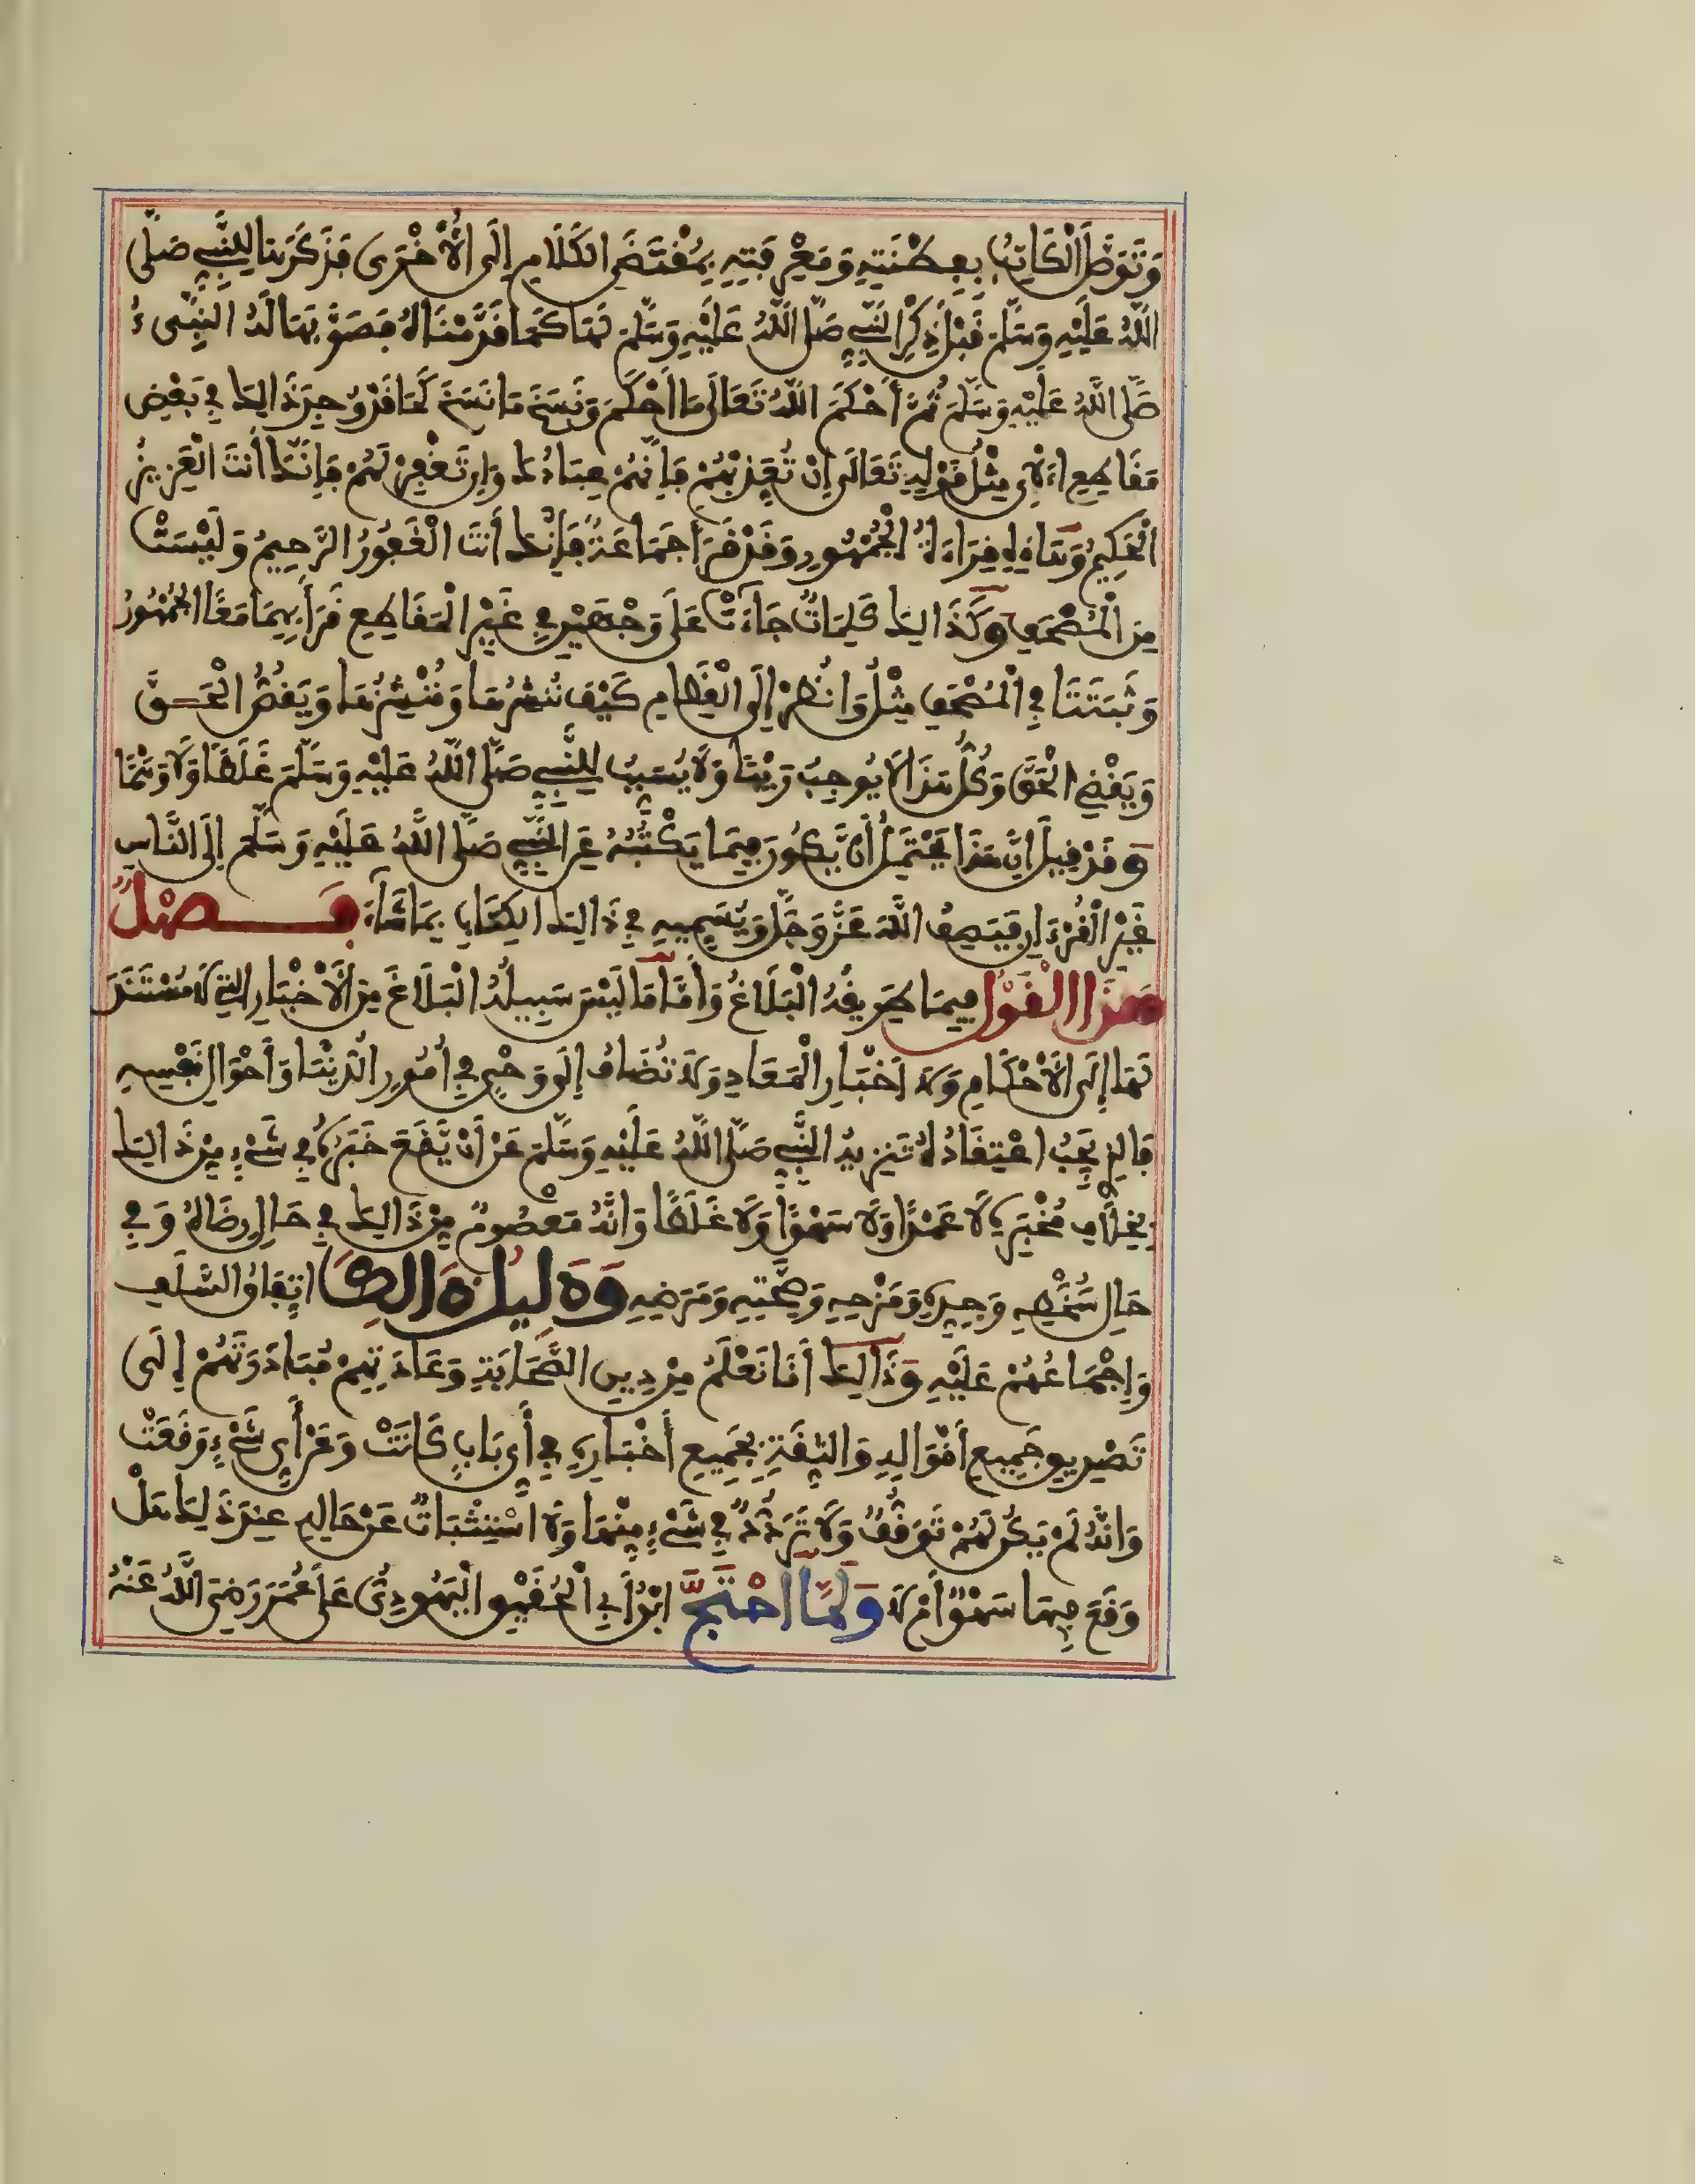 وَتَوَصَّلَ الْكَاتِبُ بِفِطْنَتِهِ وَمَعْرِفَتِهِ بِمُقْتَضَى الْكَلَامِ إِلَى الْأُخْرَى فَذَكَرَهَا لِلنَّبِيِّ صَلَّى
اللَّهُ عَلَيْهِ وَسَلَّمَ قَبْلَ ذِكْرِ النَّبِيِّ صَلَّى اللَّهُ عَلَيْهِ وَسَلَّمَ لَهَا كَمَا قَدَّمْنَاهُ فَصَوَّبَهَا لَهُ النَّبِيُّ
صَلَّى اللَّهُ عَلَيْهِ وَسَلَّمَ ثُمَّ أَحْكَمَ اللَّهُ تَعَالَى مَا أَحْكَمَ وَنَسَخَ مَا نَسَخَ كَمَا قَدْ وُجِدَ ذَالِكَ فِي بَعْضِ
مَقَاطِعِ الْآيِ مِثْلُ قَوْلِهِ تَعَالَى إِنْ تُعَذِّبْهُمْ فَإِنَّهُمْ عِبَادُكَ وَإِنْ تَغْفِرْ لَهُمْ فَإِنَّكَ أَنْتَ الْعَزِيزُ
الْحَكِيمُ وَهَاذِهِ قِرَاءَةُ الْجُمْهُورِ وَقَدْ قَرَأَ جَمَاعَةٌ فَإِنَّكَ أَنْتَ الْغَفُورُ الرَّحِيمُ وَلَيْسَتْ
مِنَ الْمُصْحَفِ وَكَذَالِكَ كَلِمَاتٌ جَاءَتْ عَلَى وَجْهَيْنِ فِي غَيْرِ الْمَقَاطِعِ قَرَأَ بِهِمَا مَعًا الْجُمْهُورُ
وَثَبَتَتَا فِي الْمُصْحَفِ مِثْلُ وَانْظُرْ إِلَى الْعِظَامِ كَيْفَ نُنْشِرُهَا وَنُنْشِزُهَا وَيَقُصُّ الْحَقَّ
وَيَقْضِي الْحَقَّ وَكُلُّ هَذَا لَا يُوجِبُ رَيْبًا وَلَا يُسَبِّبُ لِلنَّبِيِّ صَلَّى اللَّهُ عَلَيْهِ وَسَلَّمَ غَلَطًا وَلَا وَهْمًا
وَقَدْ قِيلَ إِنَّ هَذَا يَحْتَمِلُ أَنْ يَكُونَ فِيمَا يَكْتُبُهُ عَنِ النَّبِيِّ صَلَّى اللَّهُ عَلَيْهِ وَسَلَّمَ إِلَى النَّاسِ
غَيْرَ الْقُرْءَانِ فَيَصِفُ اللَّهَ عَزَّ وَجَلَّ وَيُسَمِّيهِ فِي ذَالِكَ الْكِتَابِ بِمَا شَاءَ فَصْلٌ
هَذَا الْقَوْلُ فِيمَا طَرِيقُهُ الْبَلَاغُ وَأَمَّا مَا لَيْسَ سَبِيلُهُ الْبَلَاغَ مِنَ الْأَخْبَارِ الَّتِي لَا مُسْتَنَدَ
لَهَا إِلَى الْأَحْكَامِ وَلَا أَخْبَارِ الْمَعَادِ وَلَا تُضَافُ إِلَى وَحْيٍ فِي أُمُورِ الدُّنْيَا وَأَحْوَالِ نَفْسِهِ
فَالَّذِي يَجِبُ اعْتِقَادُهُ تَنْزِيهُ النَّبِيِّ صَلَّى اللَّهُ عَلَيْهِ وَسَلَّمَ عَنْ أَنْ يَقَعَ خَبَرُهُ فِي شَيْءٍ مِنْ ذَالِكَ
بِخِلَافِ مُخْبَرِهِ لَا عَمْدًا وَلَا سَهْوًا وَلَا غَلَطًا وَانَّهُ مَعْصُومٌ مِنْ ذَالِكَ فِي حَالِ رِضَاهُ وَفِي
حَالِ سُخْطِهِ وَجِدِّهِ وَمَزْحِهِ وَصِحَّتِهِ وَمَرَضِهِ وَدَلِيلُ ذَالِكَ اتِّفَاقُ السَّلَفِ
وَإِجْمَاعُهُمْ عَلَيْهِ وَذَالِكَ أَنَّا نَعْلَمُ مِنْ دِينِ الصَّحَابَةِ وَعَادَتِهِمْ مُبَادَرَتَهُمْ إِلَى
تَصْدِيقِ جَمِيعِ أَقْوَالِهِ وَالثِّقَةِ بِجَمِيعِ أَخْبَارِهِ فِي أَيِّ بَابٍ كَانَتْ وَعَنْ أَيِّ شَيْءٍ وَقَعَتْ
وَانَّهُ لَمْ يَكُنْ لَهُمْ تَوَقُّفٌ وَلَا تَرَدُّدٌ فِي شَيْءٍ مِنْهَا وَلَا اسْتِثْبَاتٌ عَنْ حَالِهِ عِنْدَ ذَلِكَ هَلْ
وَقَعَ فِيهَا سَهْوٌ أَمْ لَا وَلَمَّا احْتَجَّ ابْنُ أَبِي الْحُقَيْقِ الْيَهُودِيُّ عَلَى عُمَرَ رَضِيَ اللَّهُ عَنْهُ